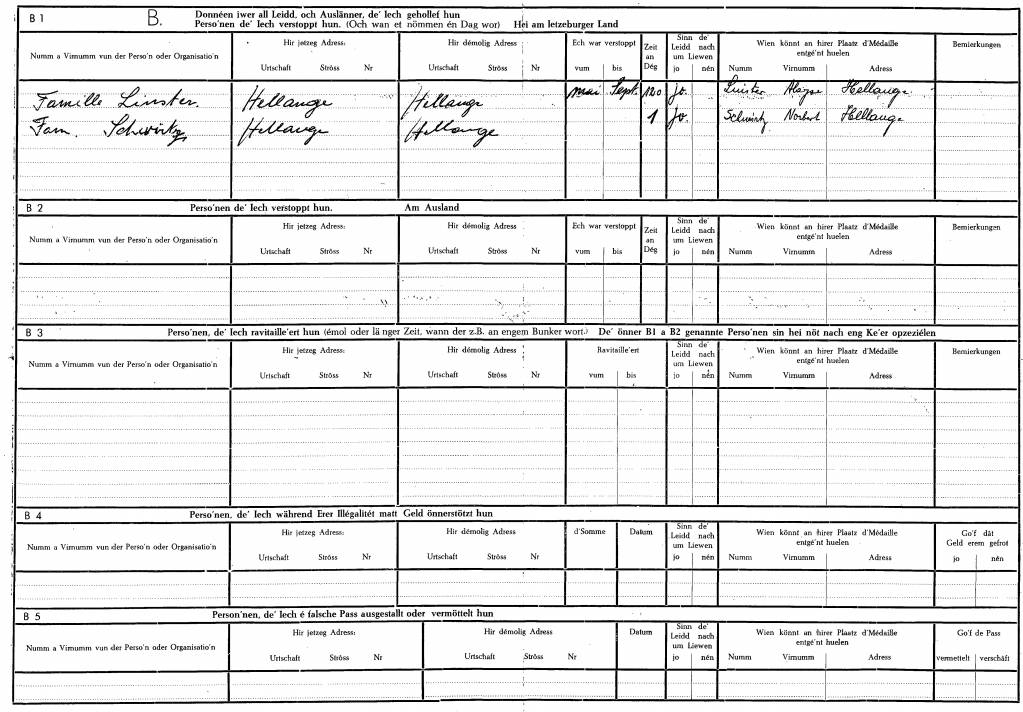 B 1 B. Donnéen iwer all Leidd, och Auslänner, de' Iech gehollef hun
Perso'nen de' Iech verstoppt hun. (Och wan et nömmen én Dag wor) Hei am letzeburger Land
Numm a Virnumm vun der Perso'n oder Organisatio'n Hir jetzeg Adress: Hir démolig Adress Ech war verstoppt Zeit an Dég Sinn de' Leidd nach um Liewen Wien könnt an hirer Plaatz d'Médaille entgé'nt huelen Bemierkungen
Urtschaft Ströss Nr Urtschaft Ströss Nr vum bis jo nén Numm Virnumm Adress
Famille Linster. Hellange Hellange mai Sept. 120 jo. Linster Aloyse Hellange
Fam. Schwirtz Hellange Hellange 1 jo. Schwirtz Norbert Hellange
B 2 Perso'nen de' Iech verstoppt hun. Am Ausland
Numm a Virnumm vun der Perso'n oder Organisatio'n Hir jetzeg Adress: Hir démolig Adress Ech war verstoppt Zeit an Dég Sinn de' Leidd nach um Liewen Wien könnt an hirer Plaatz d'Médaille entgé'nt huelen Bemierkungen
Urtschaft Ströss Nr Urtschaft Ströss Nr vum bis jo nén Numm Virnumm Adress
B 3 Perso'nen, de' Iech ravitaille'ert hun (émol oder länger Zeit, wann der z.B. an engem Bunker wort.) De' önner B1 a B2 genannte Perso'nen sin hei nöt nach eng Ke'er opzeziélen
Numm a Virnumm vun der Perso'n oder Organisatio'n Hir jetzeg Adress: Hir démolig Adress Ravitaille'ert Sinn de' Leidd nach um Liewen Wien könnt an hirer Plaatz d'Médaille entgé'nt huelen Bemierkungen
Urtschaft Ströss Nr Urtschaft Ströss Nr vum bis jo nén Numm Virnumm Adress
B 4 Perso'nen, de' Iech während Erer Illégalitét matt Geld önnerstötzt hun
Numm a Virnumm vun der Perso'n oder Organisatio'n Hir jetzeg Adress: Hir démolig Adress d'Somme Datum Sinn de' Leidd nach um Liewen Wien könnt an hirer Plaatz d'Médaille entgé'nt huelen Go'f dât Geld erem gefrot
Urtschaft Ströss Nr Urtschaft Ströss Nr jo nén Numm Virnumm Adress jo nén
B 5 Person'nen, de' Iech é falsche Pass ausgestallt oder vermöttelt hun
Numm a Virnumm vun der Perso'n oder Organisatio'n Hir jetzeg Adress: Hir démolig Adress Datum Sinn de' Leidd nach um Liewen Wien könnt an hirer Plaatz d'Médaille entgé'nt huelen Go'f de Pass
Urtschaft Ströss Nr Urtschaft Ströss Nr jo nén Numm Virnumm Adress vermettelt verschâft